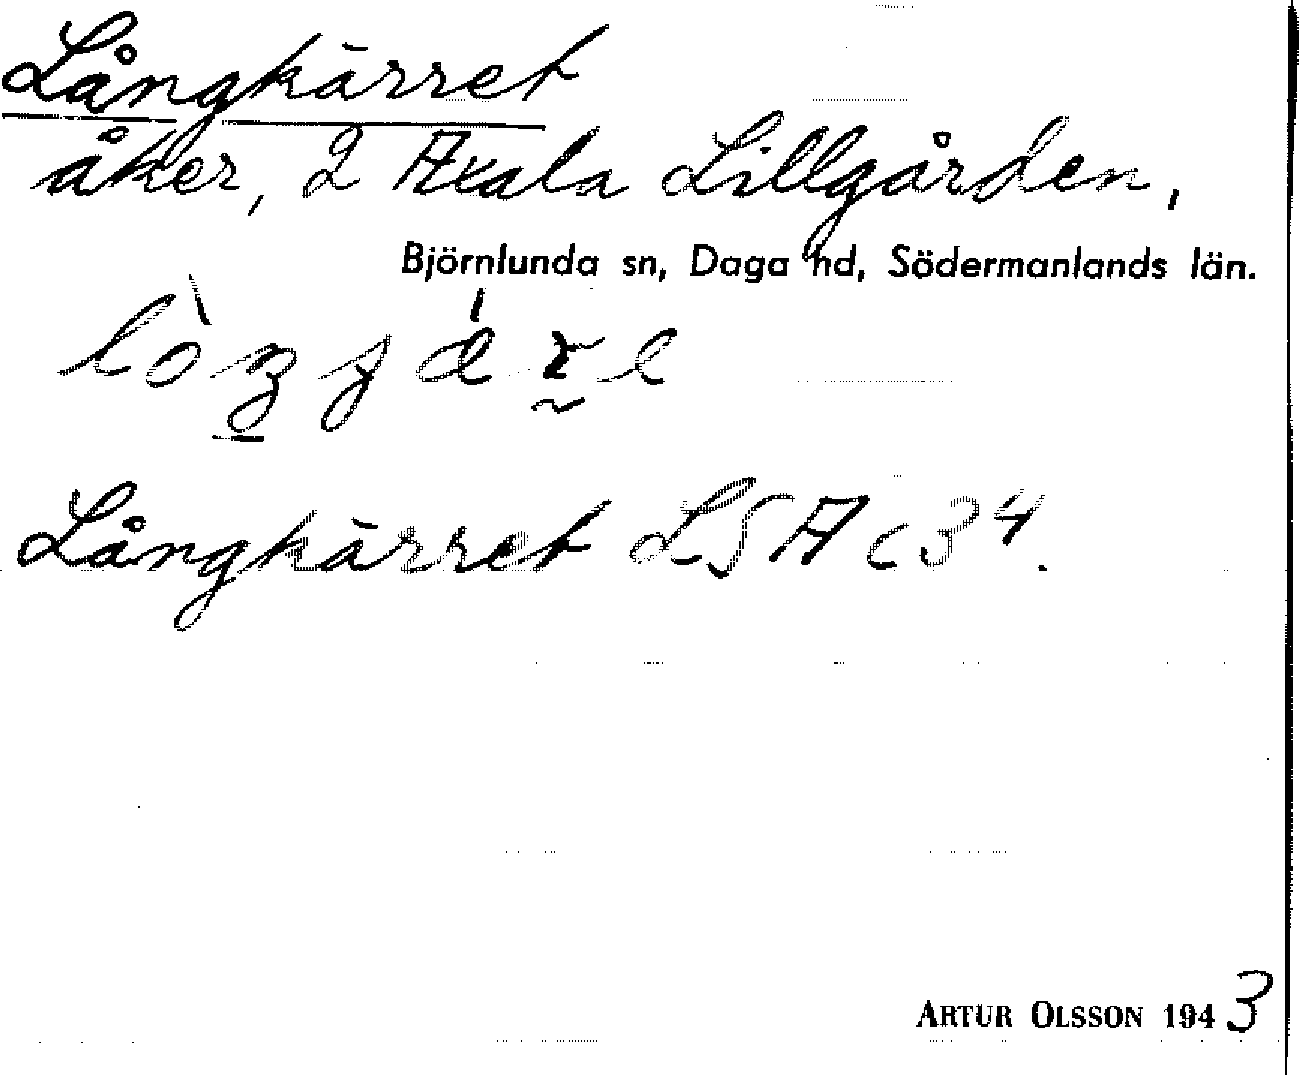 Långkärret
åker, 2 Axala Lillgården,
Björnlunda sn, Daga hd, Södermanlands län.
Långkärret LSA c 34.
ARTUR OLSSON 1943